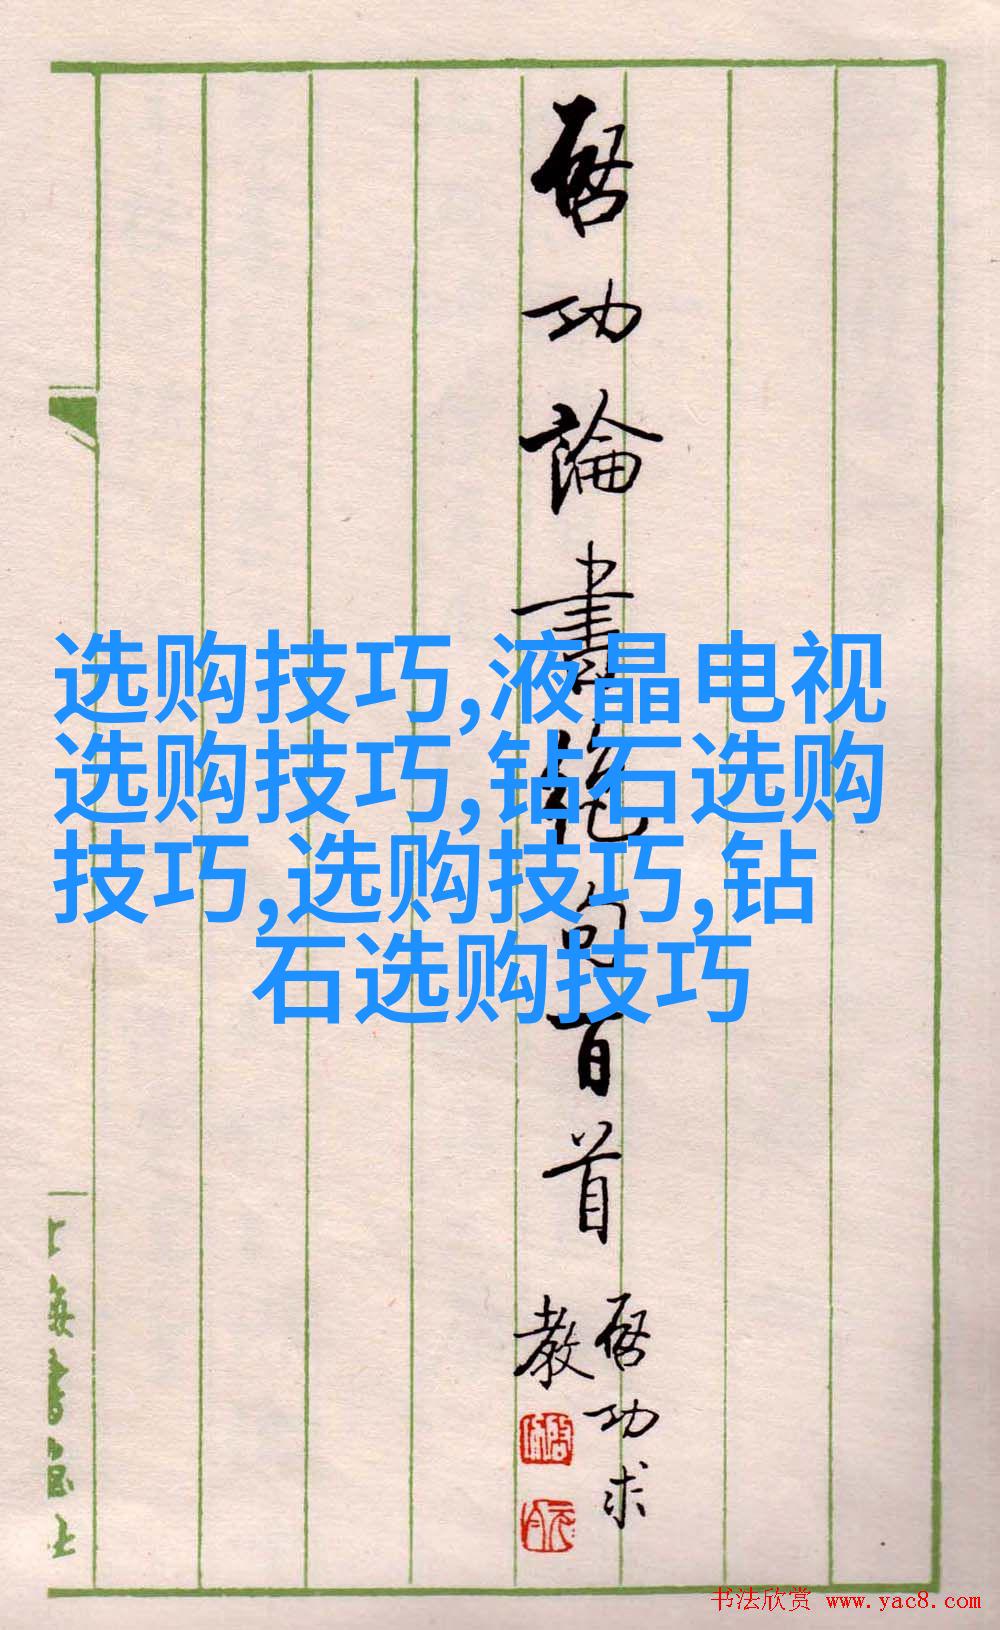 启功論書絶句百首
启功求
教
选购技巧,液晶电视
选购技巧,钻石选购
技巧,选购技巧,钻
石选购技巧
上海書画社
书法欣赏 www.yac8.com